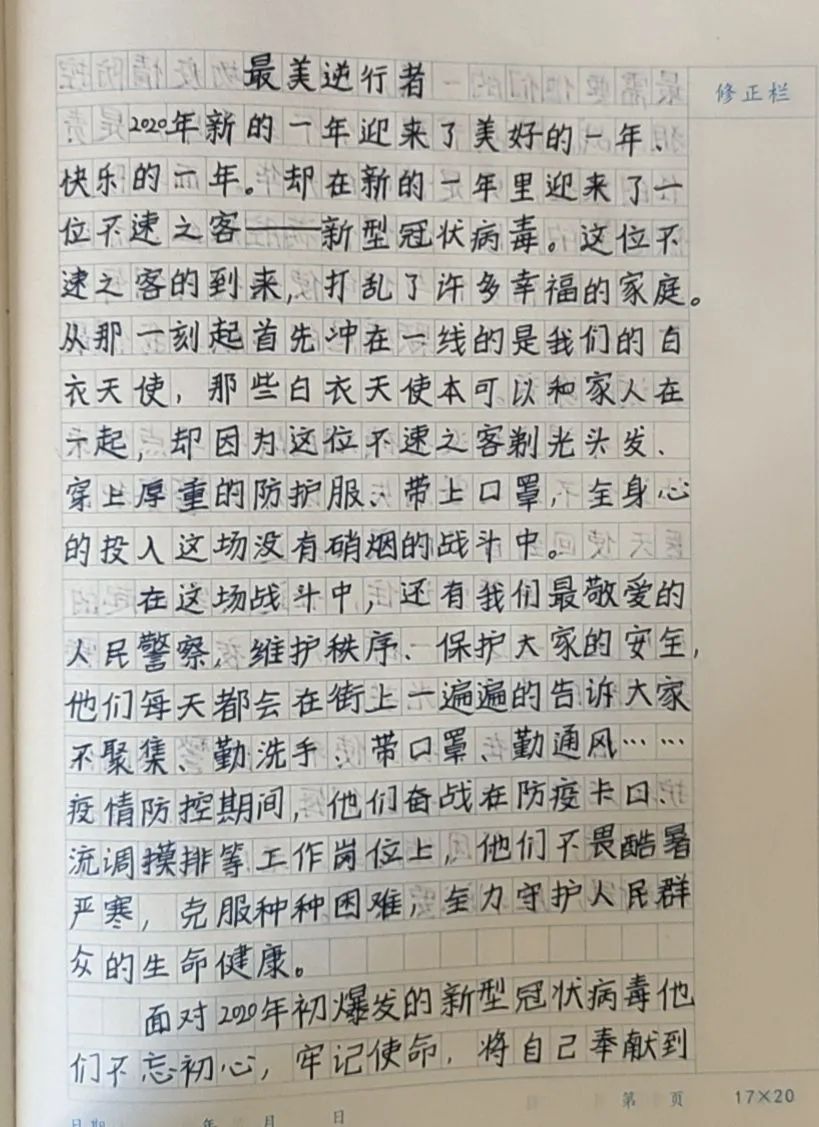 最美逆行者
修正栏
2020年新的一年迎来了美好的一年、
快乐的一年。却在新的一年里迎来了一
位不速之客——新型冠状病毒。这位不
速之客的到来,打乱了许多幸福的家庭。
从那一刻起首先冲在一线的是我们的白
衣天使,那些白衣天使本可以和家人在
一起,却因为这位不速之客剃光头发、
穿上厚重的防护服、带上口罩,全身心
的投入这场没有硝烟的战斗中。
在这场战斗中,还有我们最敬爱的
人民警察,维护秩序、保护大家的安全,
他们每天都会在街上一遍遍的告诉大家
不聚集、勤洗手、带口罩、勤通风……
疫情防控期间,他们奋战在防疫卡口、
流调摸排等工作岗位上,他们不畏酷暑
严寒,克服种种困难,全力守护人民群
众的生命健康。
面对2020年初爆发的新型冠状病毒他
们不忘初心,牢记使命,将自己奉献到
第 页 17×20
日期 年 月 日